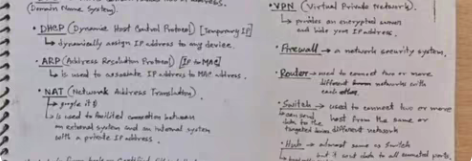 (Domain Name System).
• DHCP (Dynamic Host Control Protocol) [Temporary IP]
↳ dynamically assign IP address to my device.
• ARP (Address Resolution Protocol) [IP to MAC]
↳ is used to associate IP address to MAC address.
• NAT (Network Address Translation)
↳ used to facilited connection between
an external system and an internal system
with a private IP address.
• VPN (Virtual Private Network).
↳ provides an encrypted
and hide your IP address.
• Firewall → a network security system.
• Router → used to connect two or more
different networks with
each other.
• Switch → used to connect two or more
host from the same or
different network
• Hub → almost same as switch
but it sent data to all connected ports